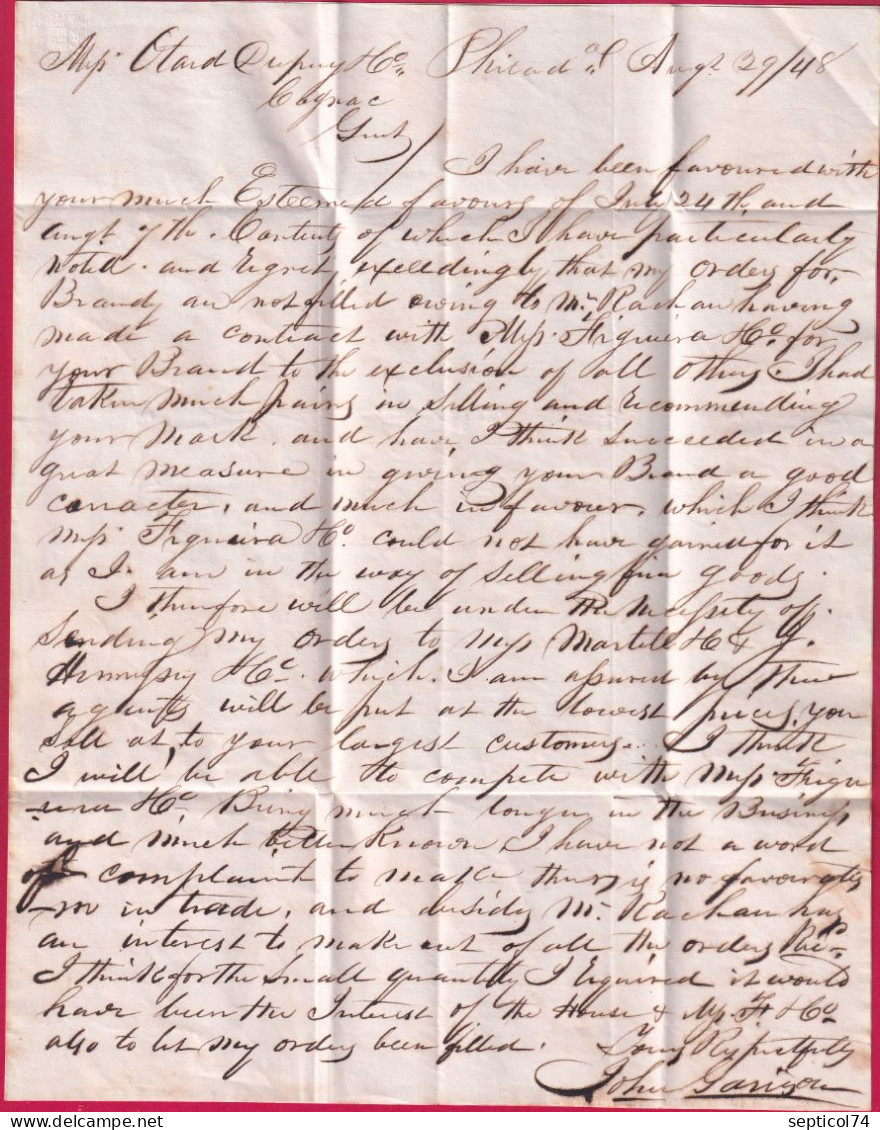 Mess. Otard Dupuy & Co. Philad.a Augt 29/48
Cognac
Gent
I have been favoured with
your much Esteemed favours of July 24th and
augt 7th. Contents of which I have particularly
noted. and regret exceedingly that my orders for
Brandy are not filled owing to Mr. Rachau having
made a contract with Mess. Figueira & Co. for
your Brand to the exclusion of all others. I had
taken much pains in selling and recommending
your Mark. and have I think succeeded in a
great measure in giving your Brand a good
caracter, and much in favour, which I think
Mess. Figueira & Co. could not have gained for it
as I am in the way of selling fine goods.
I therefore will be under the necessity of
sending my orders to Mess Martell & Co & J.
Hennessy & Co. which I am assured by their
agents will be put at the lowest prices you
sell at to your largest customers. I think
I will be able to compete with Mess. Figu
-eira & Co. Being much longer in the Business
and much better Known I have not a word
of complaint to make there is no favouratis
-m in trade, and besides Mr. Rachau has
an interest to make out of all the orders
I think for the small quantity I required it would
have been the Interest of the House & Mess. F & Co.
also to let my orders been filled. Yours Respectfully
John
septicol74